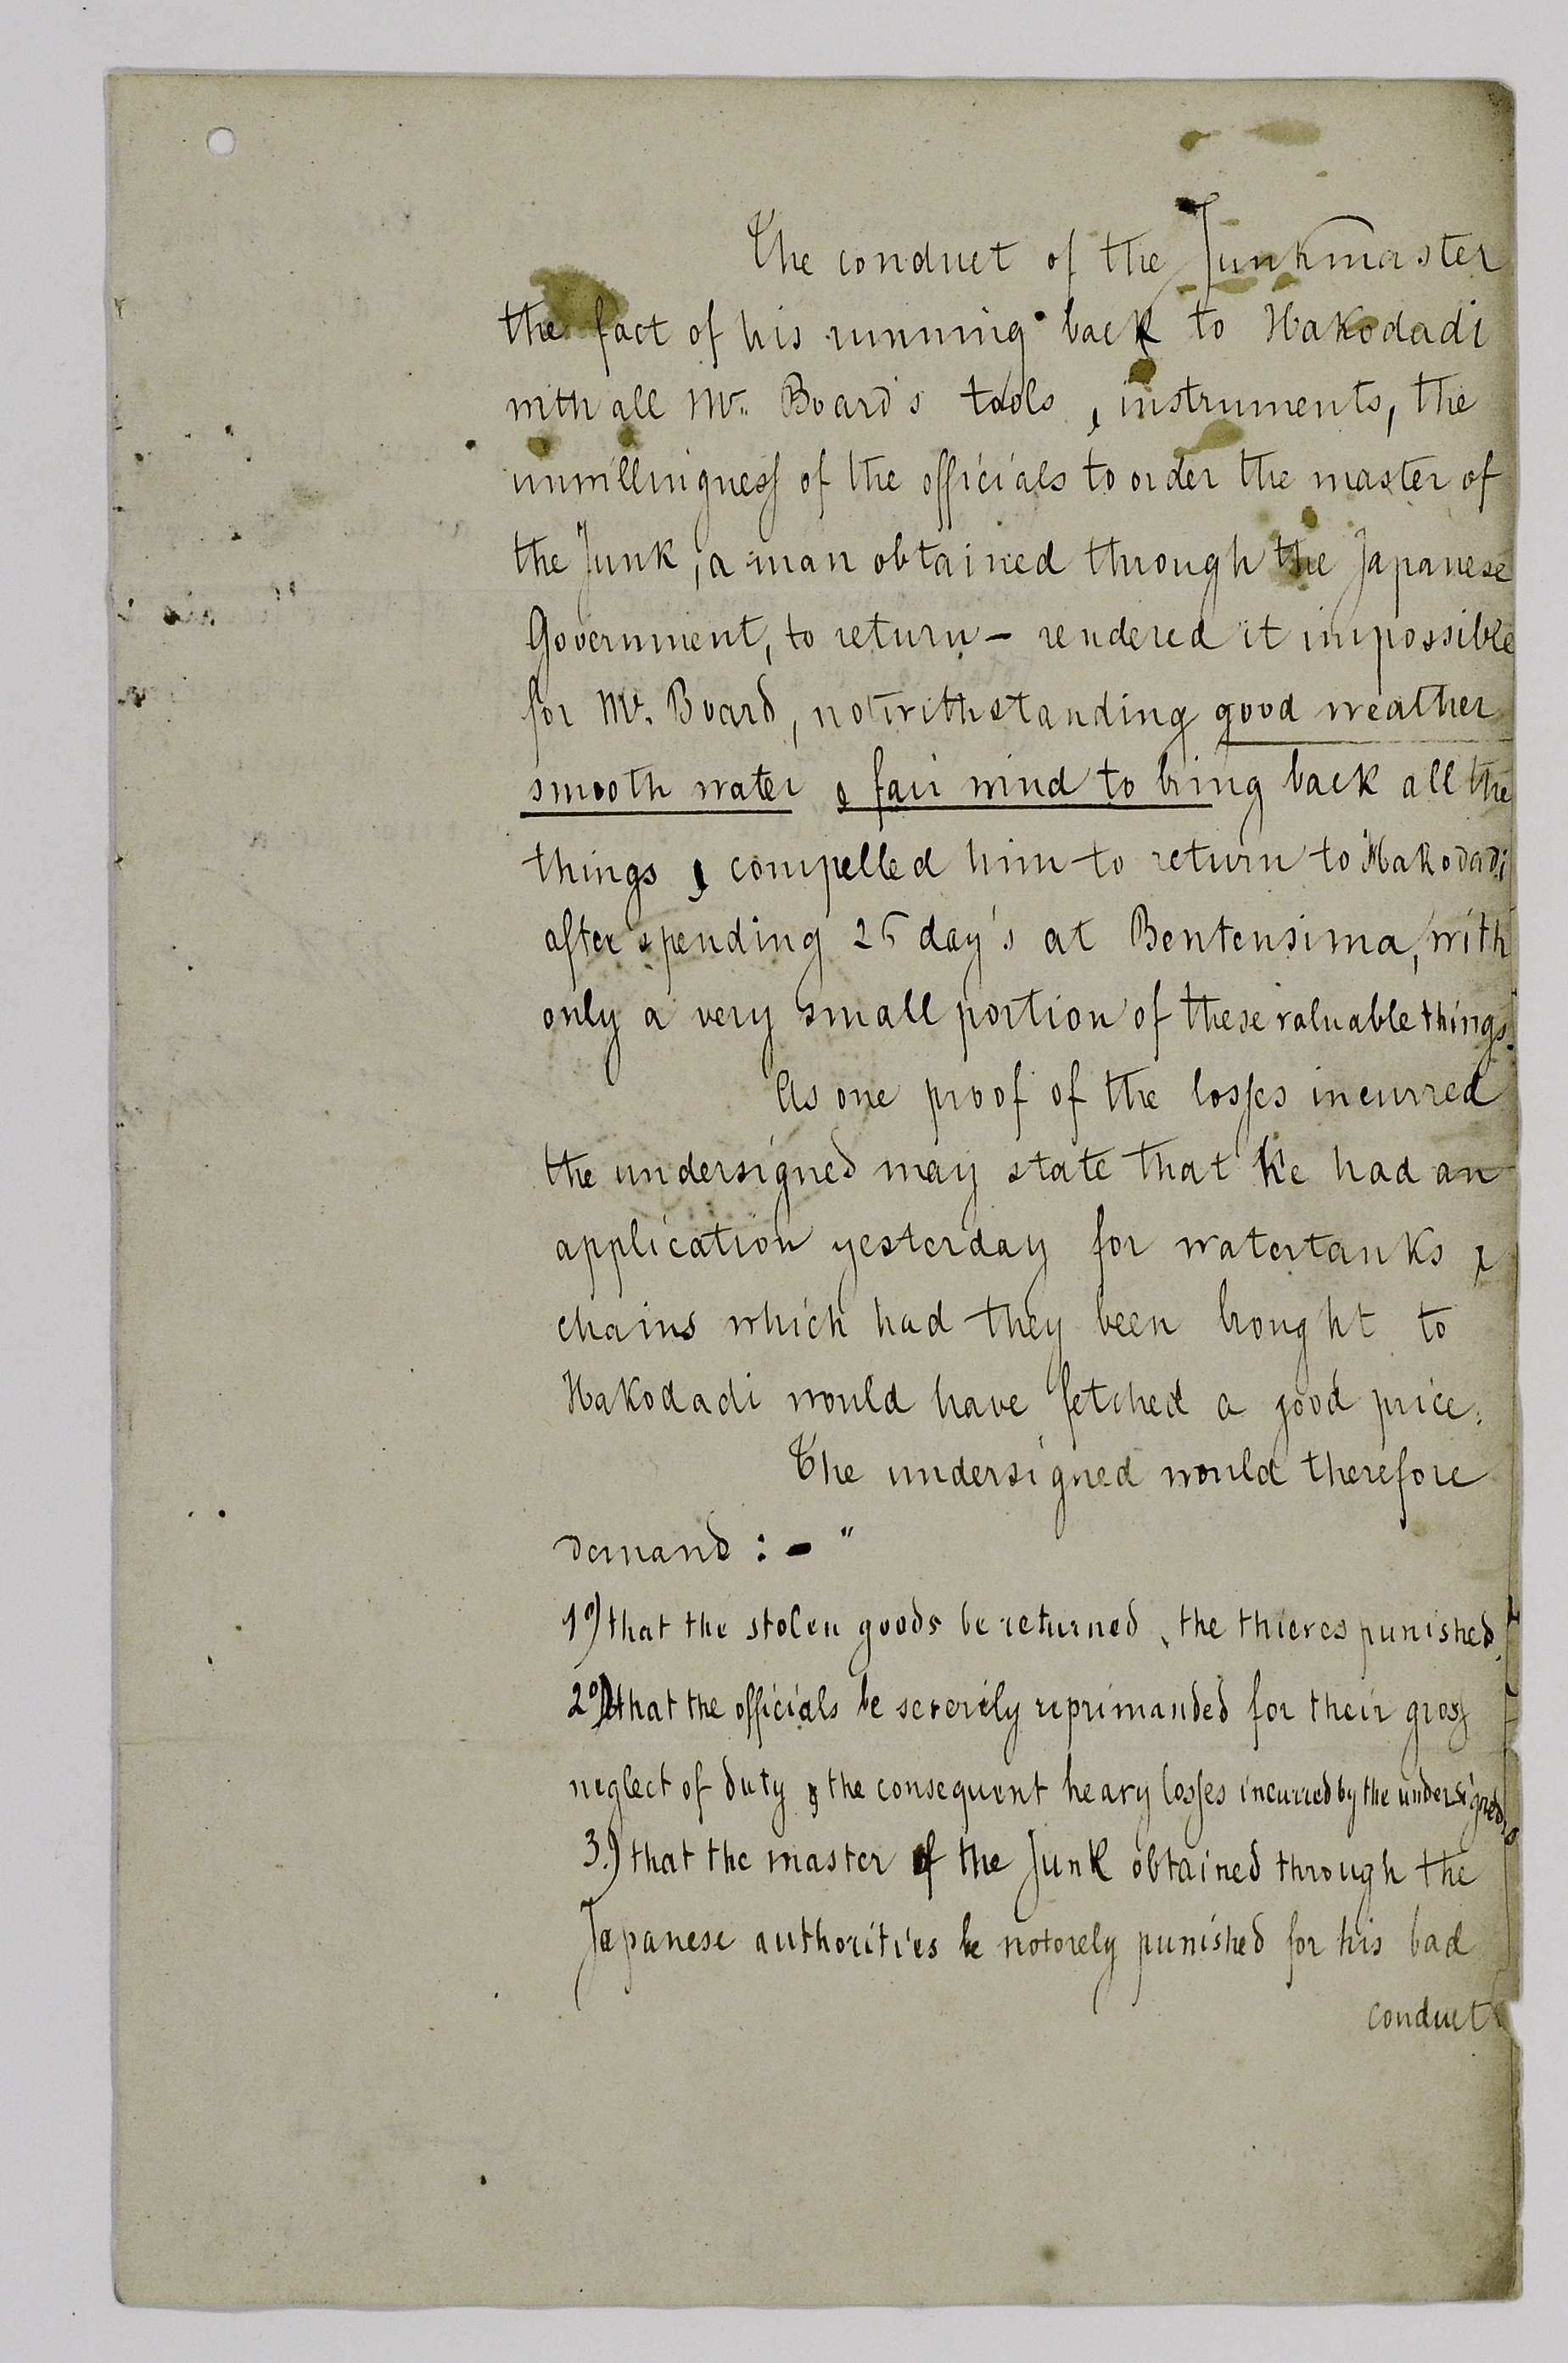 The conduct of the Junkmaster
the fact of his running back to Hakodadi
with all Mr. Board's tools & instruments, the
unwillingness of the officials to order the master of
the Junk, a man obtained through the Japanese
Government, to return – rendered it impossible
for Mr. Board, notwithstanding good weather
smooth water & fair wind to bring back all the
things & compelled him to return to Hakodadi
after spending 25 day's at Bentensima, with
only a very small portion of these valuable things.
As one proof of the losses incurred
the undersigned may state that he had an
application yesterday for watertanks &
chains which had they been brought to
Hakodadi would have fetched a good price.
The undersigned would therefore
demand : – "
1°) that the stolen goods be returned, the thieves punished.
2°) that the officials be severely reprimanded for their gross
neglect of duty & the consequent heavy losses incurred by the undersigned
3.) that the master of the Junk obtained through the
Japanese authorities be punished for his bad
conduct